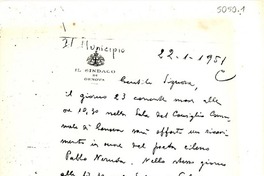 5050.1
Il Municipio
22-1-1951
IL SINDACO
DI
GENOVA
C
Gentile Signore,
il giorno 23 corrente mese alle
ore 10,30 nella Sala del Consiglio Comu-
nale di Genova sarà offerto un ricevi-
mento in onore del poeta cileno
Pablo Neruda. Nello stesso giorno
alle